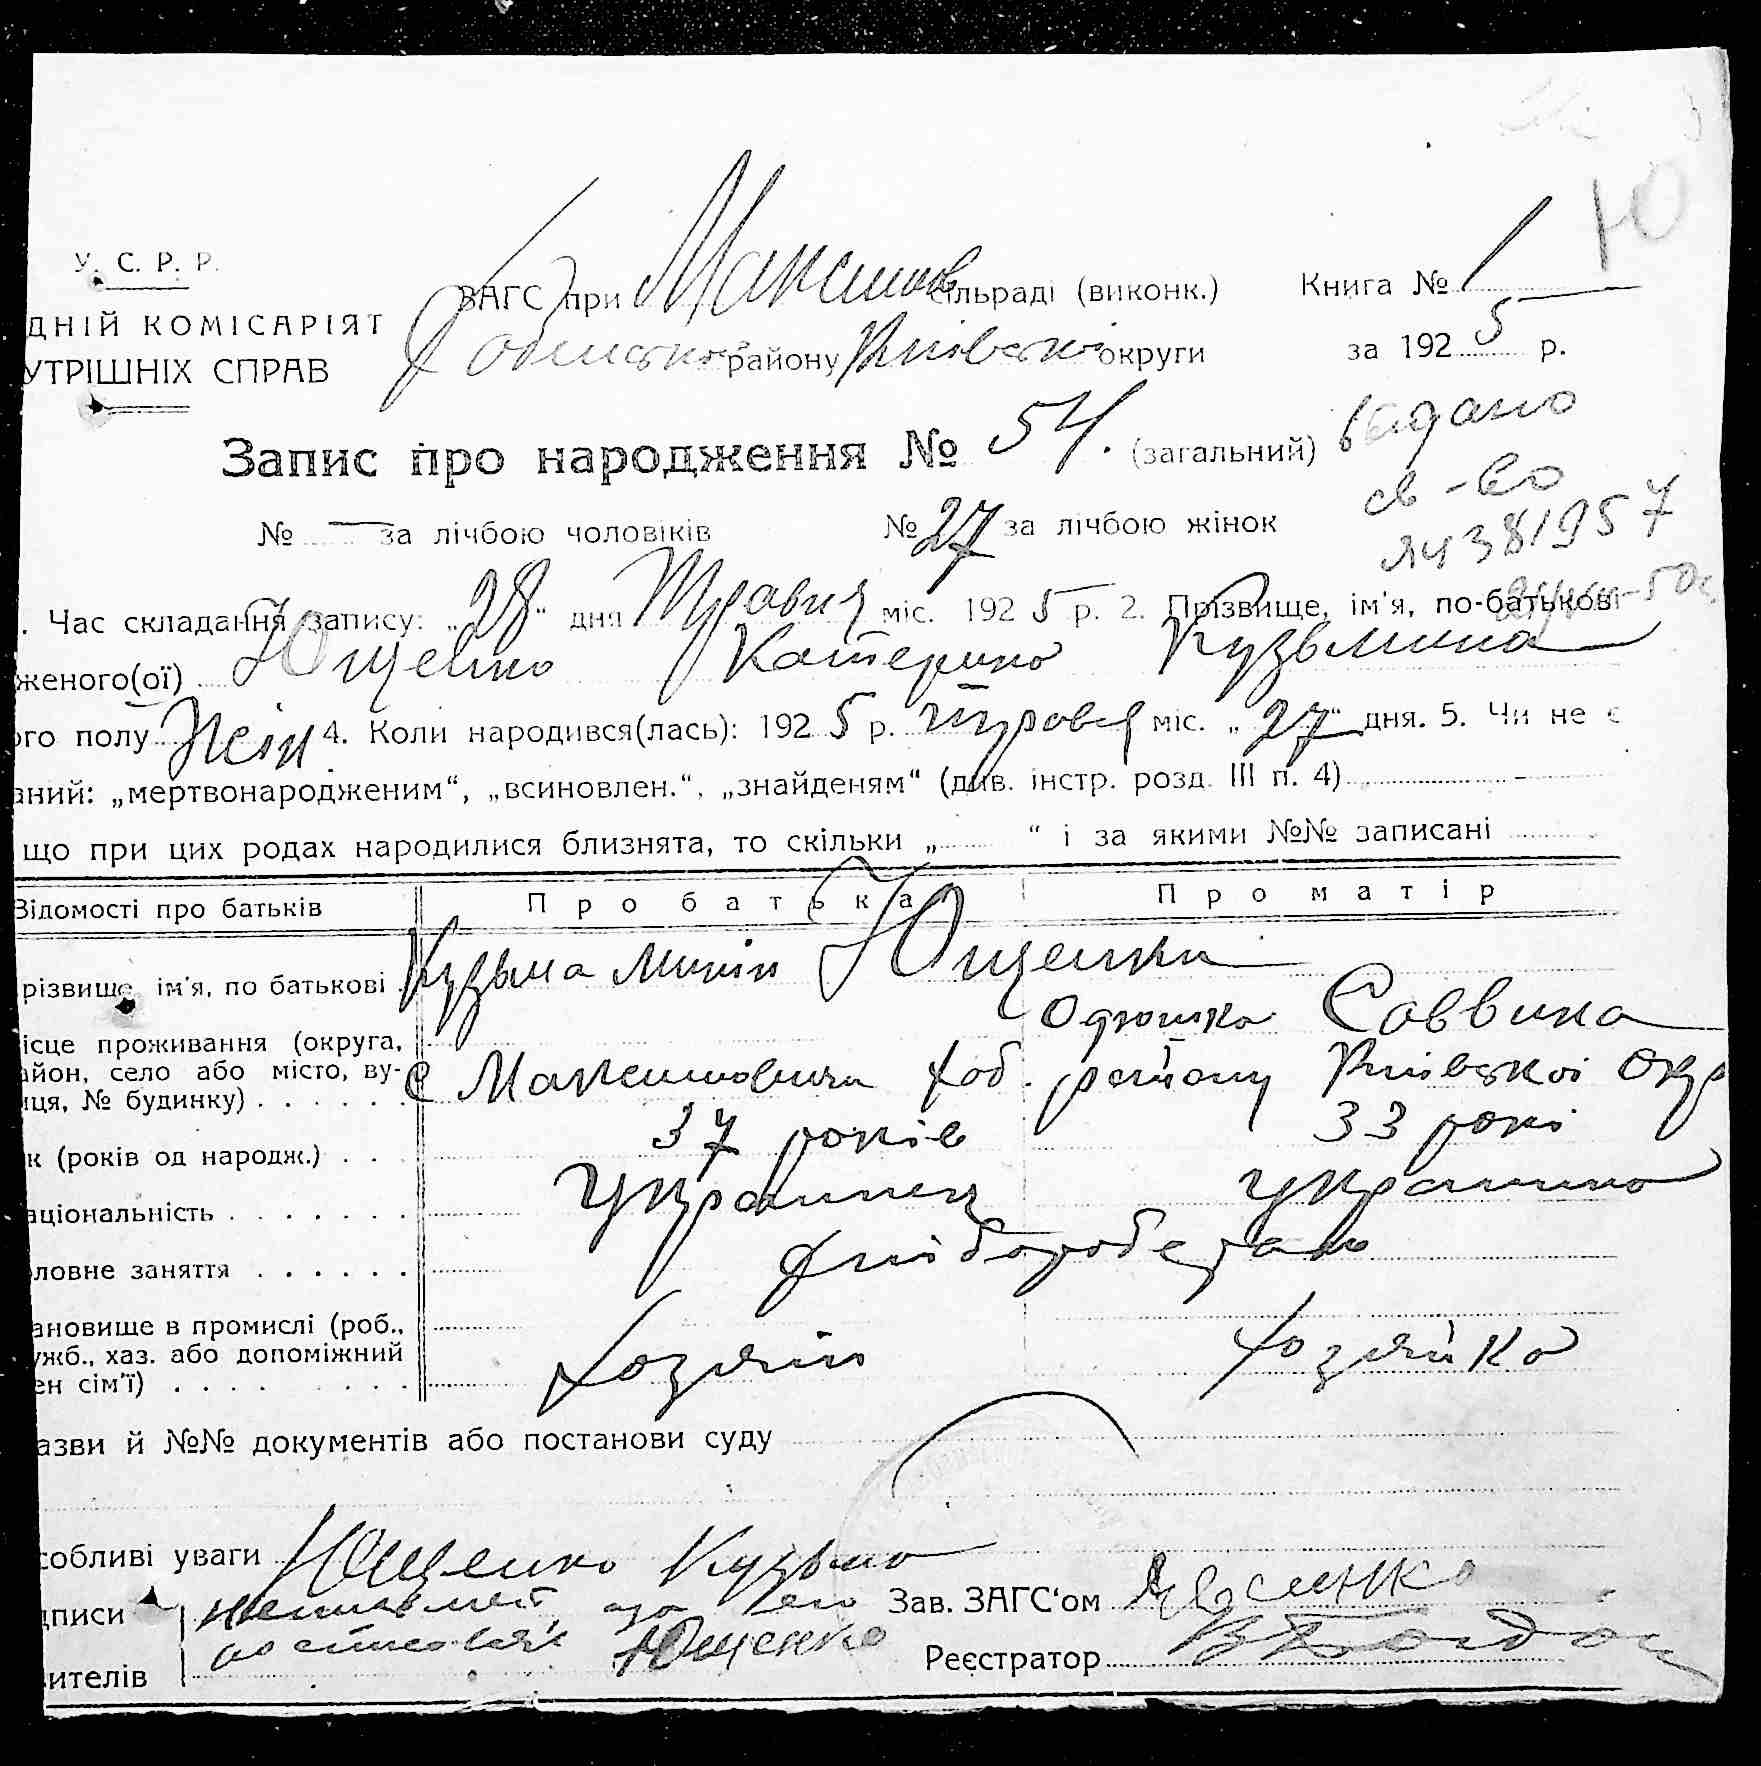 У. С. Р. Р.
ДНІЙ КОМІСАРІЯТ
УТРІШНІХ СПРАВ
ЗАГС при Максимов сільраді (виконк.)
району Київської округи
Книга № 1
за 192 5 р.
10
Запис про народження № 54. (загальний)
видано
св-во
ЯЧ 381957
№ — за лічбою чоловіків № 27 за лічбою жінок
. Час складання запису: „28“ дня Травня міс. 192 5 р. 2. Прізвище, ім'я, по-батькові
женого(ої) Ющенко Катерина Кузьмина
ого полу Жін 4. Коли народився(лась): 192 5 р. травня міс. „27“ дня. 5. Чи не є
аний: „мертвонародженим“, „всиновлен.“, „знайденям“ (див. інстр. розд. III п. 4) -
що при цих родах народилися близнята, то скільки „ “ і за якими №№ записані
Відомості про батьків Про батька Про матір
різвище, ім'я, по батькові Кузьма Минін Ющенки
Одошка Саввина
ісце проживання (округа,
айон, село або місто, ву-
иця, № будинку) с Максимовичи Хоб. району Київської Окр
к (років од народж.) 37 років 33 рокі
аціональність Українец Українка
ловне заняття Хлібороберань
ановище в промислі (роб.,
ужб., хаз. або допоміжний
ен сім'ї) Хозяїн Хозяйка
азви й №№ документів або постанови суду
собливі уваги Ющенко Кузьма
дписи неписьмен, за его
ителів росписався Ющенко
Зав. ЗАГС'ом
Реєстратор